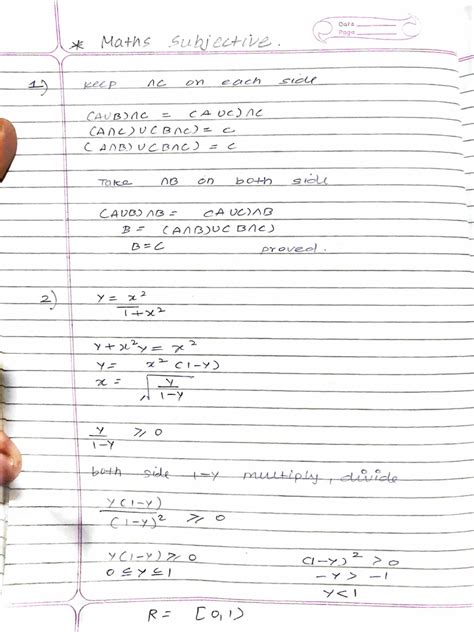 Date
Page
* Maths Subjective.
1) Keep ∩C on each side
(A∪B)∩C = (A∪C)∩C
(A∩C)∪(B∩C) = C
(A∩B)∪(B∩C) = C
Take ∩B on both side
(A∪B)∩B = (A∪C)∩B
B = (A∩B)∪(B∩C)
B=C proved.
2) y = x²
1+x²
y+x²y = x²
y = x²(1-y)
x = √ y
1-y
y ≥ 0
1-y
both side 1-y multiply, divide
y(1-y) ≥ 0
(1-y)²
y(1-y) ≥ 0 (1-y)² > 0
0 ≤ y ≤ 1 -y > -1
y < 1
R = [0,1)